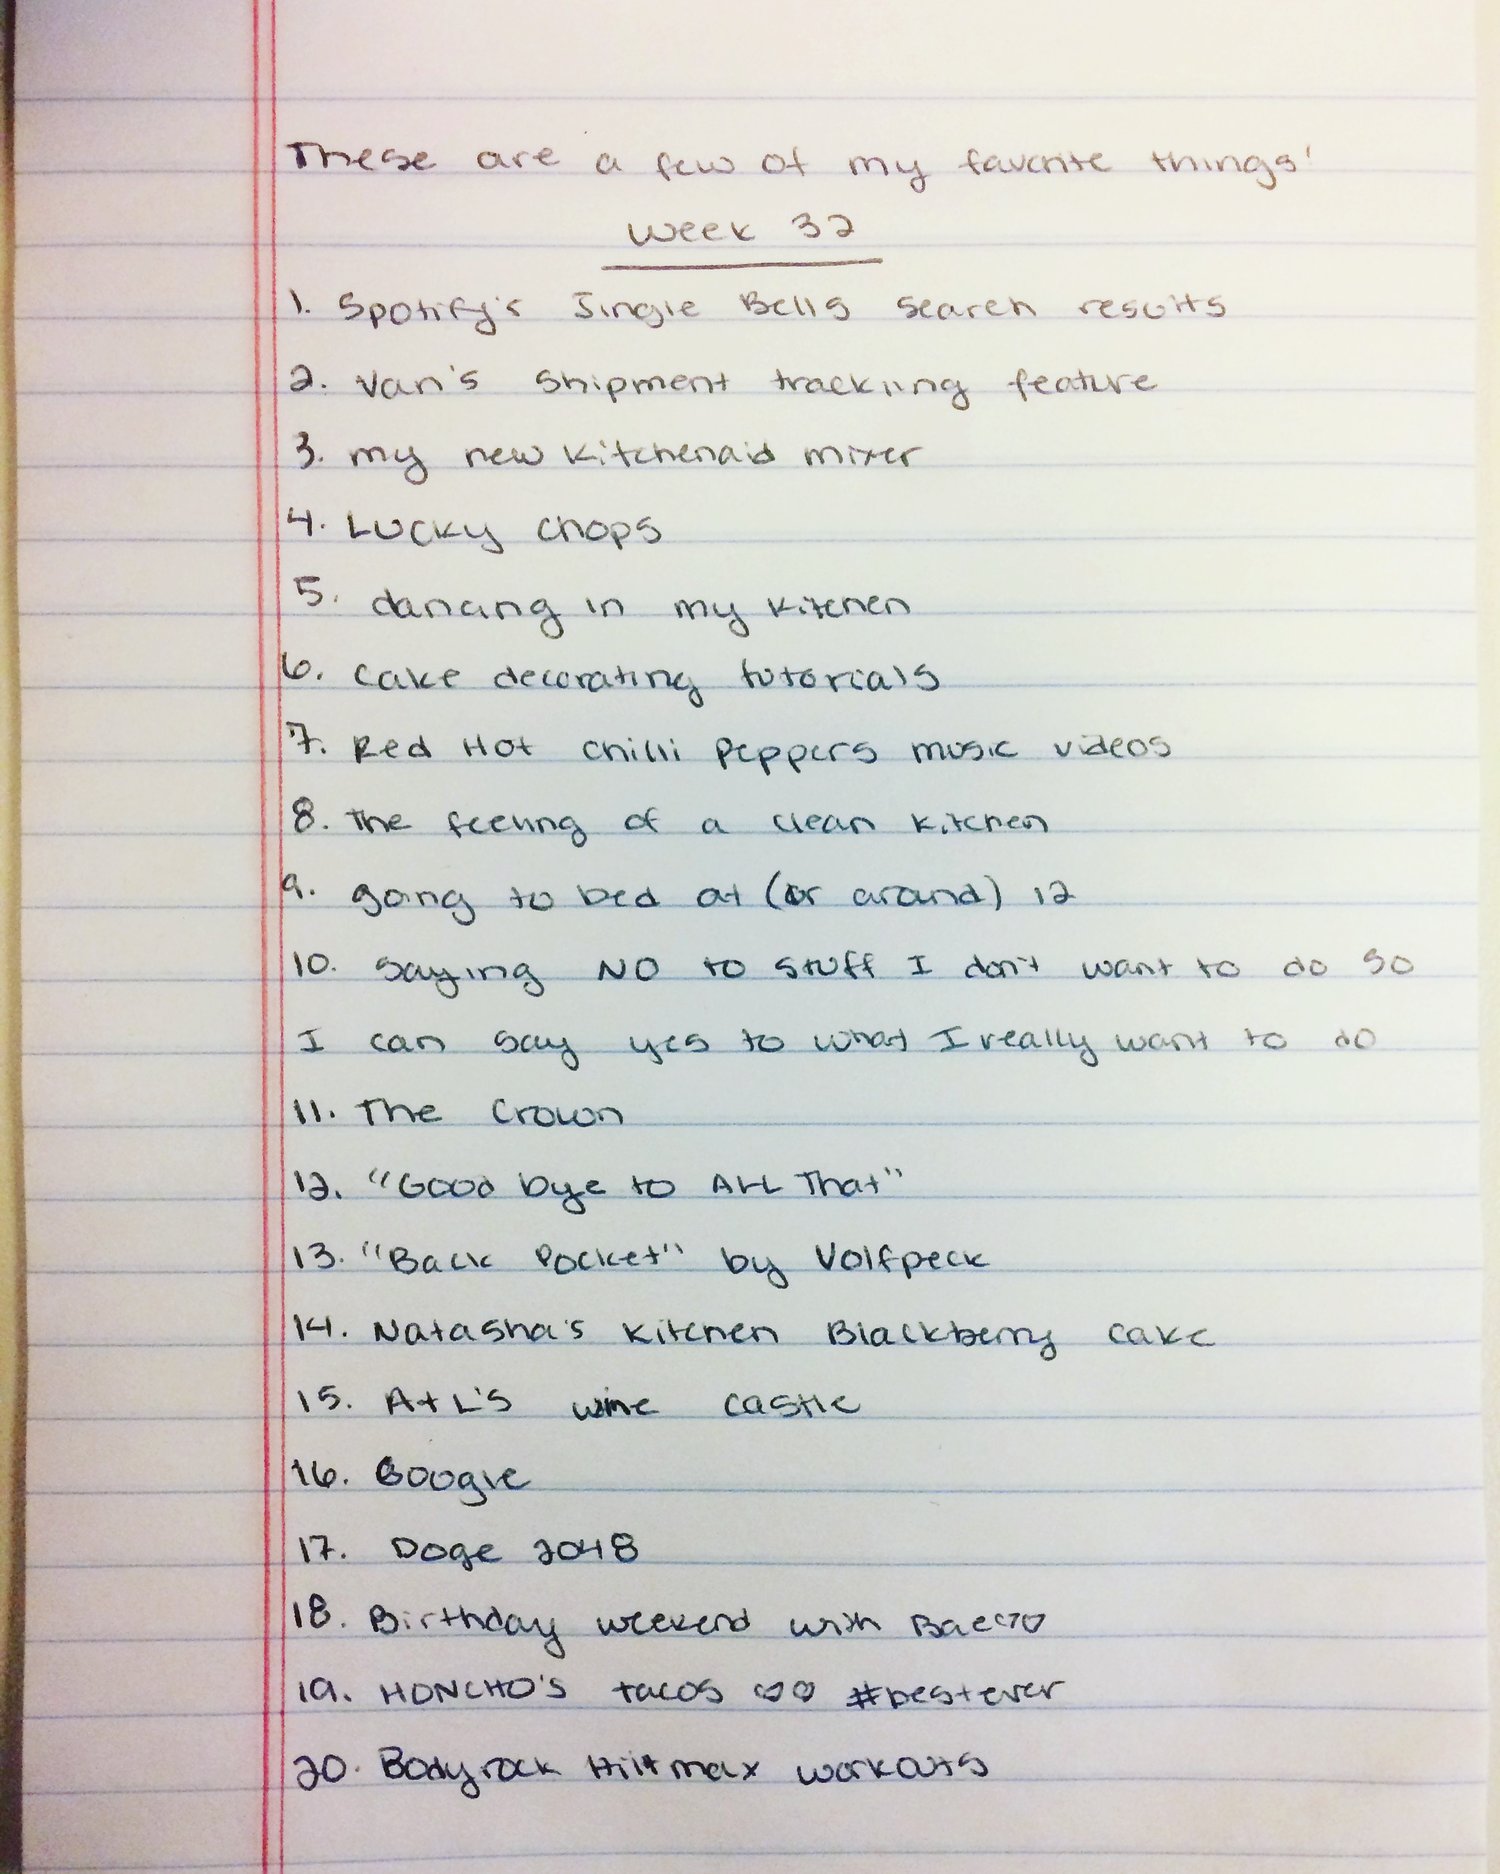 These are a few of my favorite things!
Week 32
1. Spotify's Jingle Bells search results
2. Van's shipment trackiing feature
3. my new kitchenaid mixer
4. Lucky Chops
5. dancing in my kitchen
6. cake decorating tutorials
7. Red Hot Chilli Peppers music videos
8. The feeling of a clean kitchen
9. going to bed at (or around) 12
10. saying NO to stuff I don't want to do so
I can say yes to what I really want to do
11. The Crown
12. "Good bye to ALL That"
13. "Back Pocket" by Volfpeck
14. Natasha's Kitchen Blackberry cake
15. A+L's wine castle
16. Google
17. Doge 2048
18. Birthday weekend with Bae♡♡
19. HONCHO'S tacos ♡♡ #bestever
20. Bodyrock Hiitmax workouts